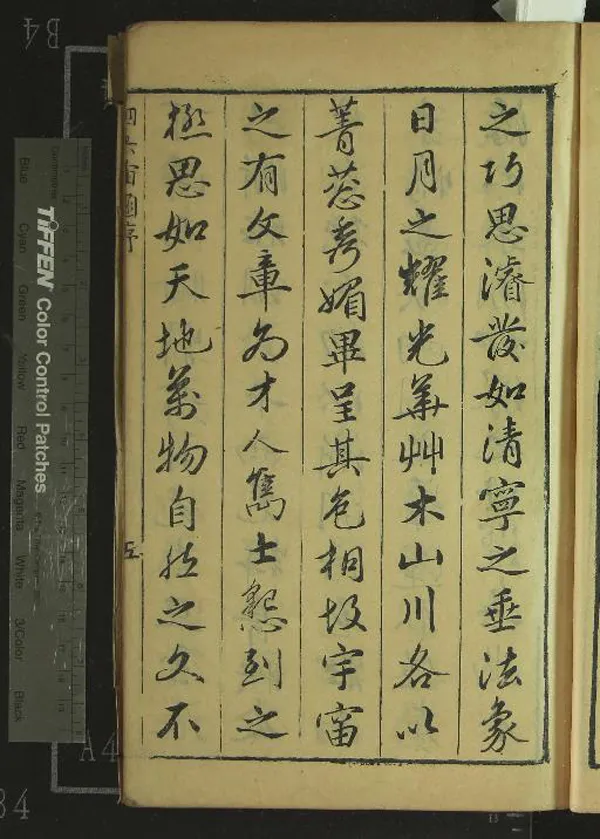 之巧思濬發如清寧之垂法象
日月之耀光華艸木山川各以
菁蔥秀媚畢呈其色相故宇宙
之有文章為才人雋士懇到之
極思如天地萬物自然之文不
序
五
TIFFEN Color Control Patches
Blue Cyan Green Yellow Red Magenta White 3/Color Black
B4
A4
84